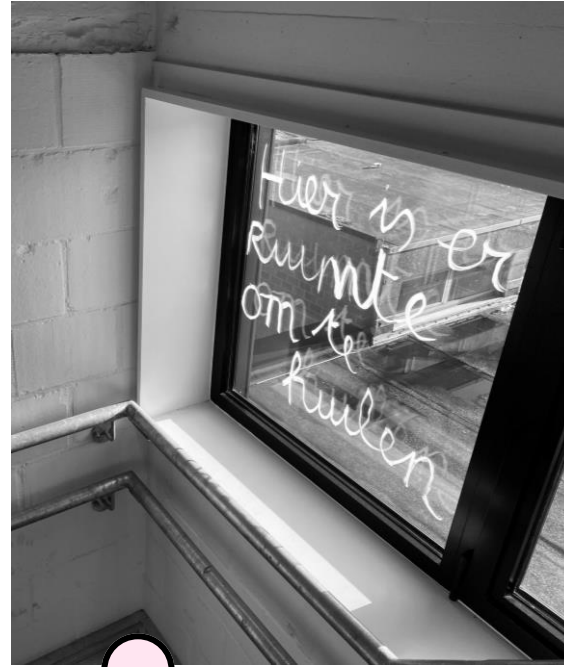 Hier is er
ruimte
om te
huilen